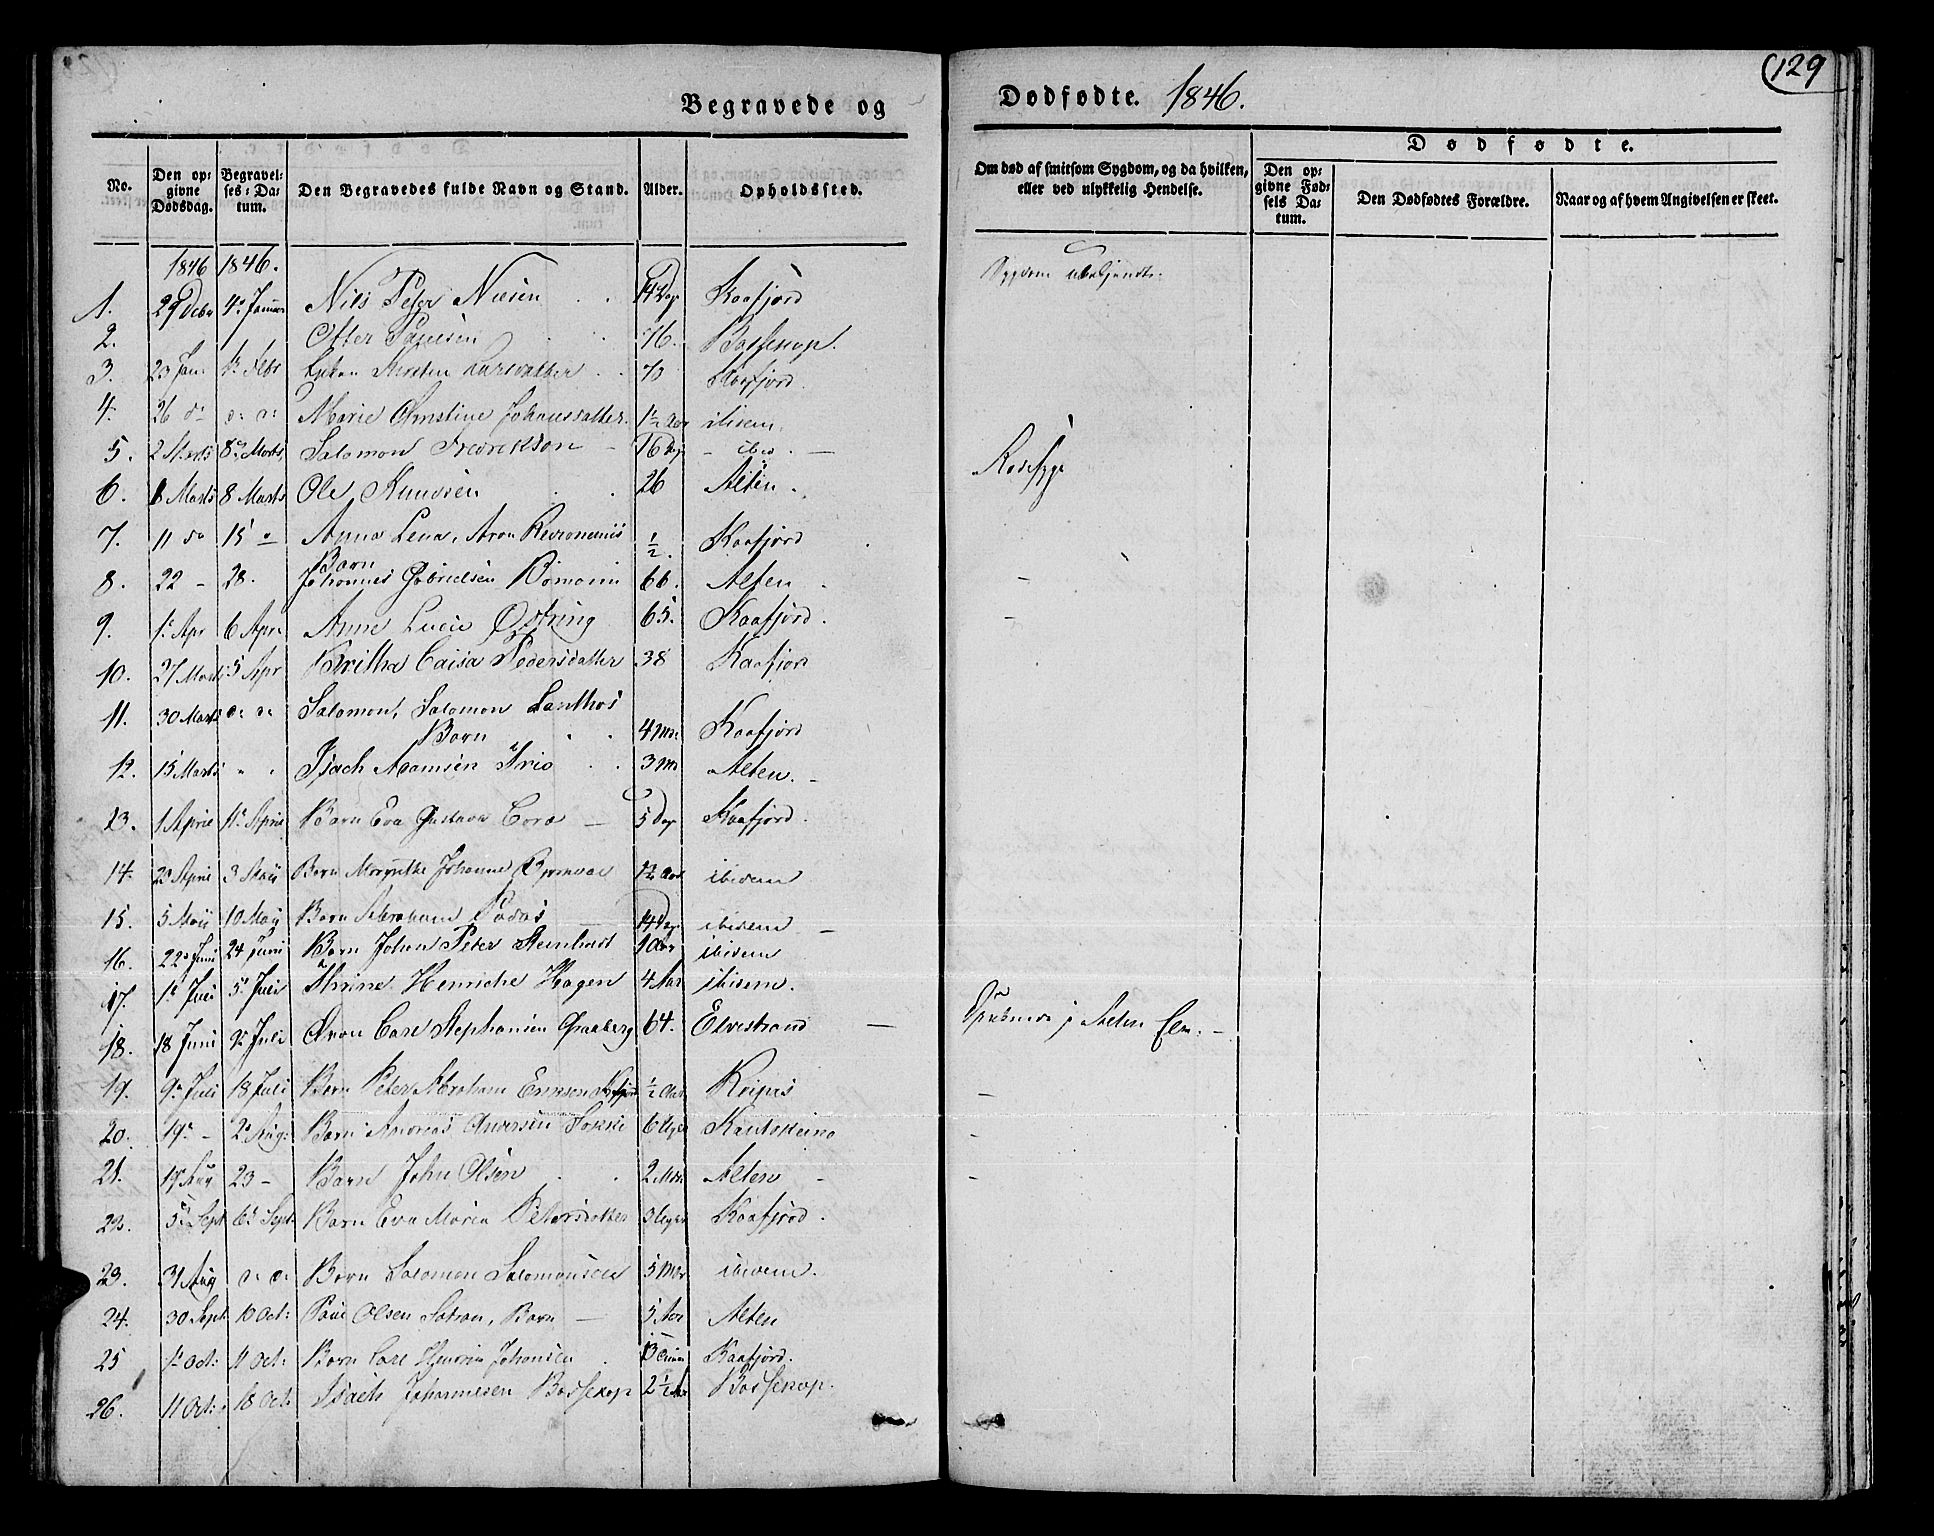 129
Begravede og Dødfødte. 1846.
No. Den opgivne Dødsdag. Begravelses-Datum. Den Begravedes fulde Navn og Stand. Alder. Opholdssted. Om død af smitsom Sygdom, og da hvilken, eller ved ulykkelig Hendelse. Dødfødte.
Den opgivne Fødsels Datum. Den Dødfødtes Forældre. Naar og af hvem Angivelsen er skeet.
1846 1846.
1. 29 Debr 4de Januar Nils Peter Nilsen 14 Dage Kaafjord Sygdom ubekjendt.
2. Efter Poulsen 76. Bossekop.
3. 23 Jan. 1ste Feb. Kirsten Larsdatter 70 Kaafjord.
4. 26 do do do Marie Christine Johansdatter. 1½ Aar ibidem.
5. 2 Marts 8de Marts, Salomon Fredrikson 16 Dage ibid.
6. 1 Marts 8 Marts Ole Knudsen 26 Alten.
7. 11 do 15 Anna Lena, Aron
Barn ½. Kaafjord
8. 22 - 28. Johannes Gabrielsen 66. Alten
9. 1ste Apr 6 Apr. Anne Lucie Østring 65. Kaafjord.
10. 27 Marts 5 Apr Britha Caisa Pedersdatter 38 Kaafjor
11. 30 Marts do do Salomon, Salomon
Barn 4 Mdr Kaafjord
12. 15 Marts " " Isach Adamsen 3 Mdr Alten.
13. 1 April 1ste April Barn Eva Gustava 5 Dage Kaafjord.
14. 20 April 3 Maii Barn Johanne 1½ Aar ibidem
15. 5 Maii 10 Maij Barn Abraham 14 Dage ibidem
16. 22de Juni 24 Juni Barn Johan Peter 1 Aar ibidem
17. 1ste Juli 5te Juli Henriche Hagen 4 Aar ibidem.
18. 18 Juni 2den Juli Carl Stephansen Graaberg 64. Elvestrand Druknede i Alten Elv.
19. 9de Juli 18 Juli Barn Peter Abraham Eriksen ½ Aar
20. 19de - 2den Aug: Barn Andreas Andersen 6 Uger Kautokeino
21. 17 Aug 23 - Barn John Olsen 2 Mdr Alten
22. 5te Sept 6te Sept. Barn Eva Maria Petersdatter 3 Uger Kaafjord.
23. 31 Aug do do Barn Salomon Salomonsen 5 Mdr ibidem.
24. 30 Sept 10 Oct: Poul Olsen Barn 5 Aar Alten
25 1ste Oct: 11 Oct: Barn Carl Henrik Johansen Kaafjord.
26. 11 Oct: 18 Oct: Isach Johannesen Bossekop 2½ Aar Bossekop.